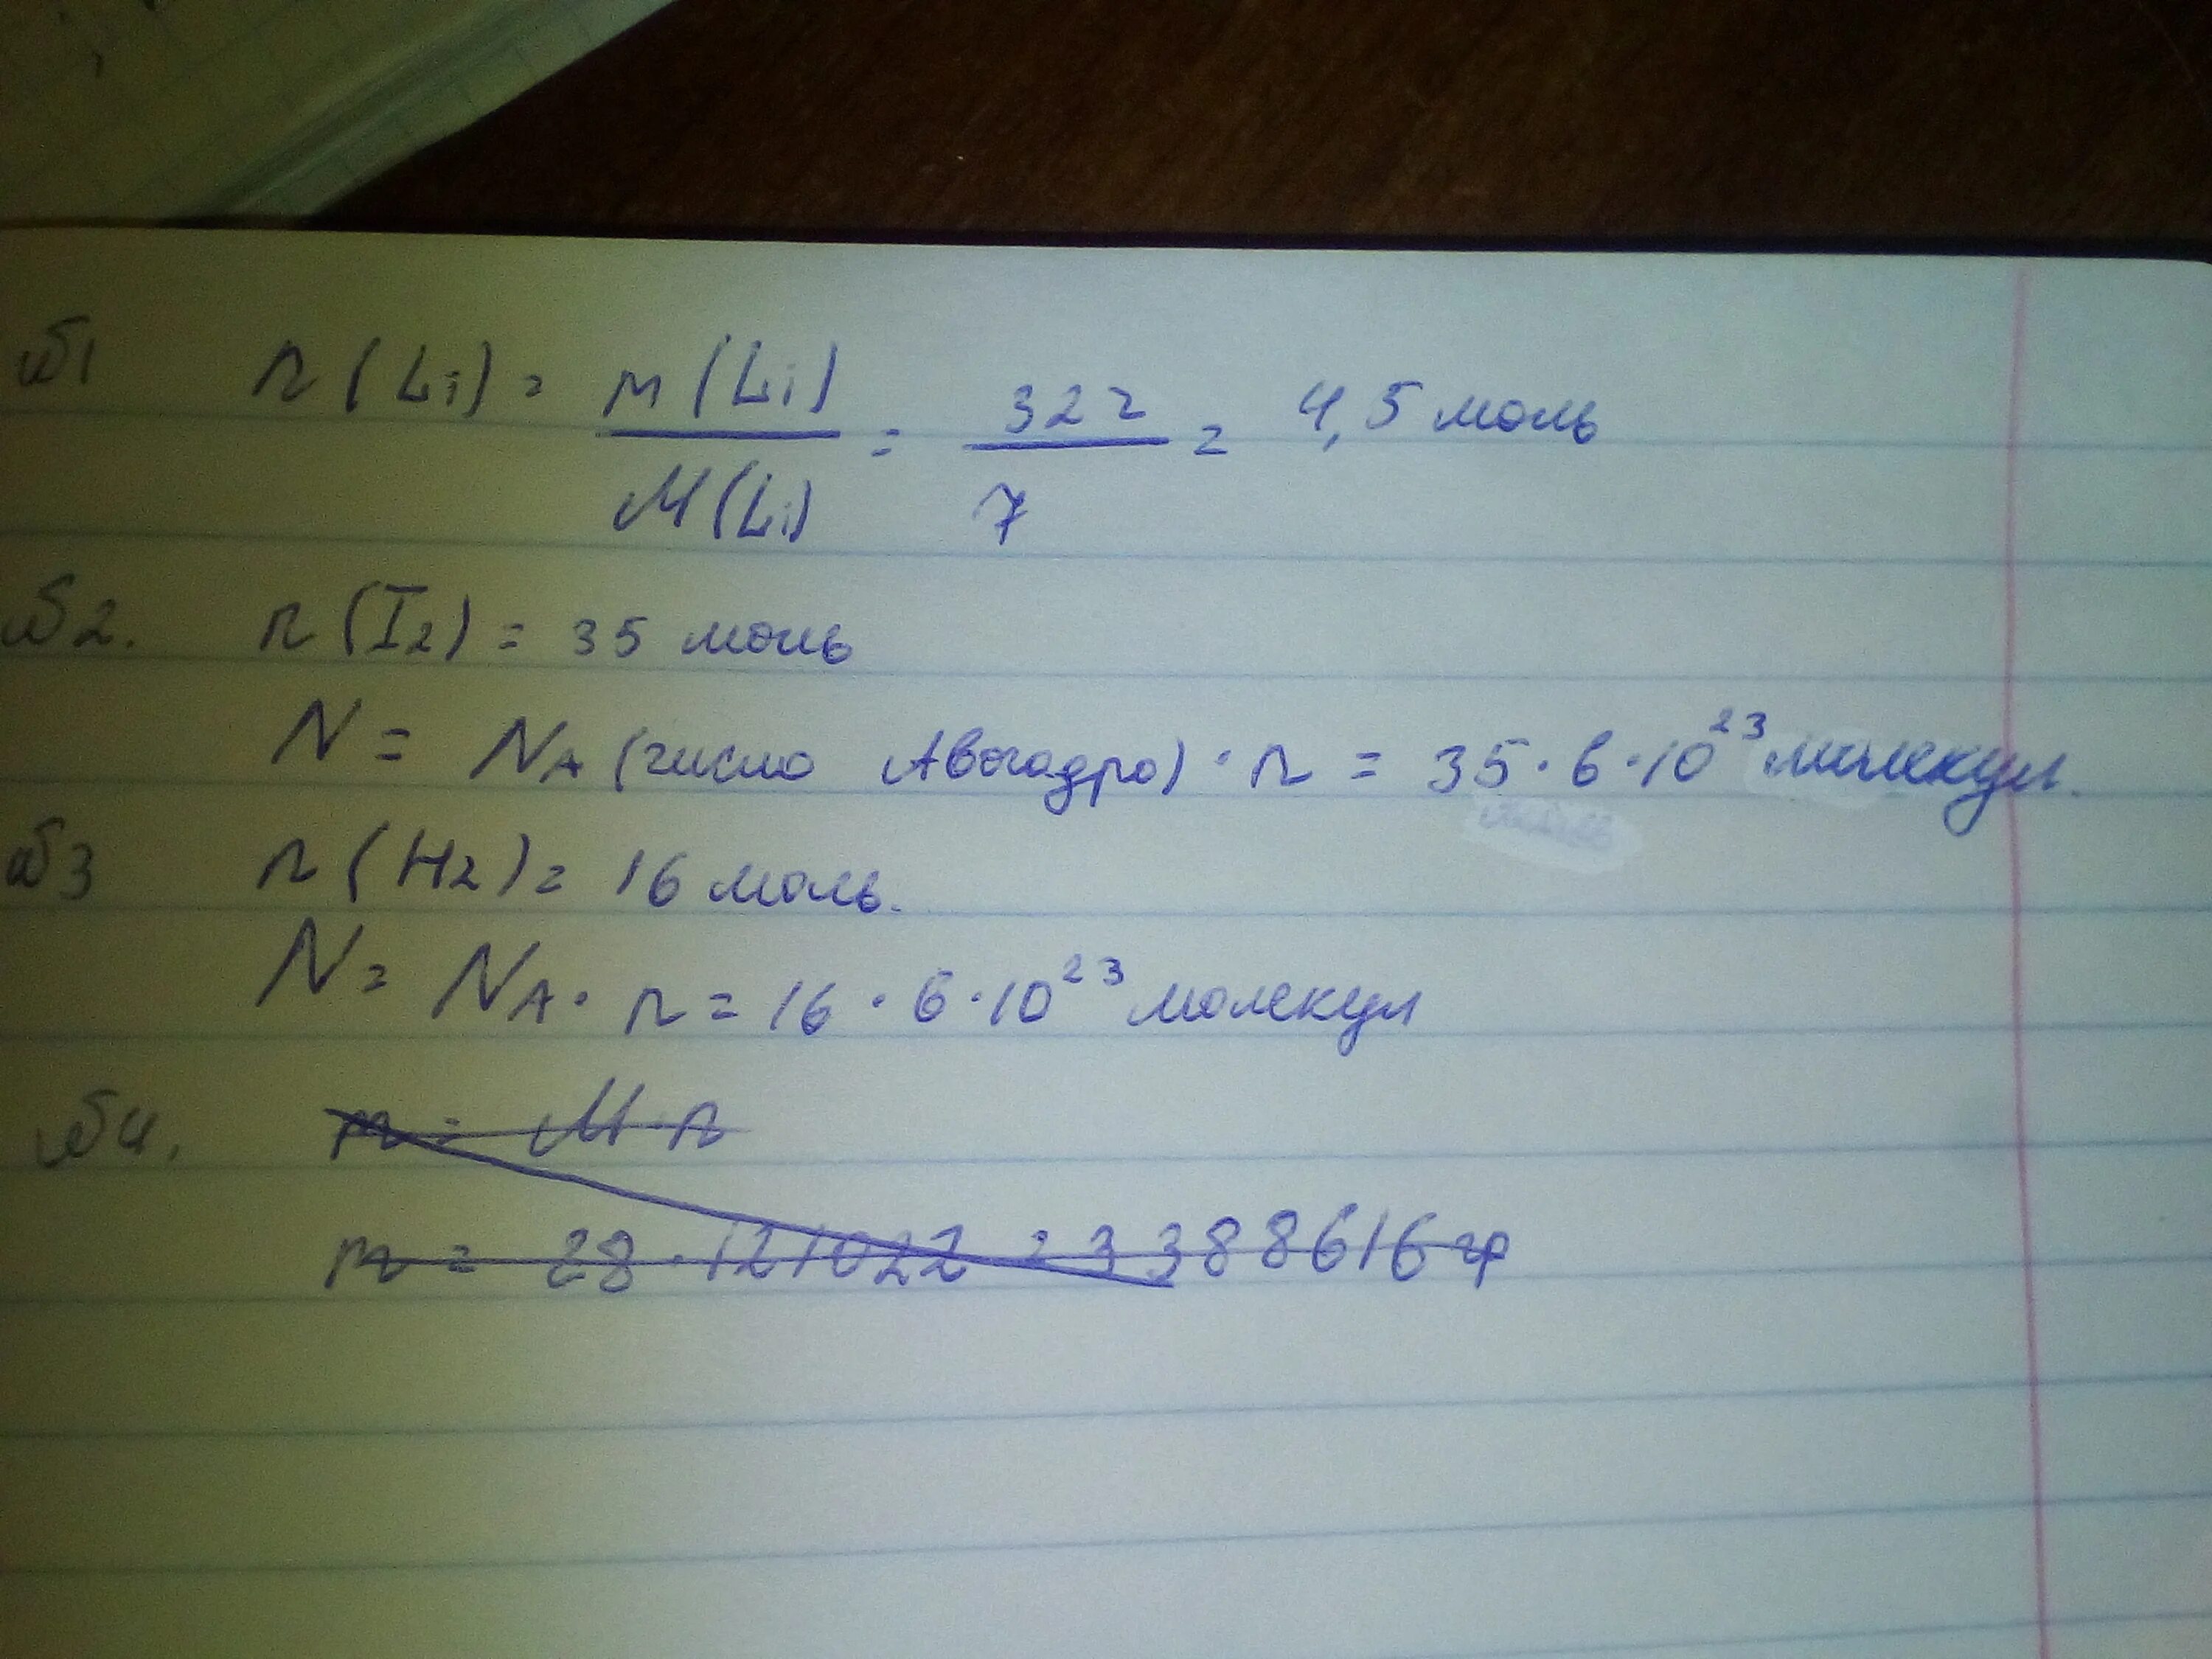 №1 n(Li) = m(Li) / M(Li) = 32г / 7 = 4,5 моль
№2. n(I2) = 35 моль
N = NA (число Авогадро) · n = 35 · 6 · 10²³ молекул.
№3 n(H2) = 16 моль.
N = NA · n = 16 · 6 · 10²³ молекул
№4. m = M · n
m = 28 · 121022 = 3388616 гр